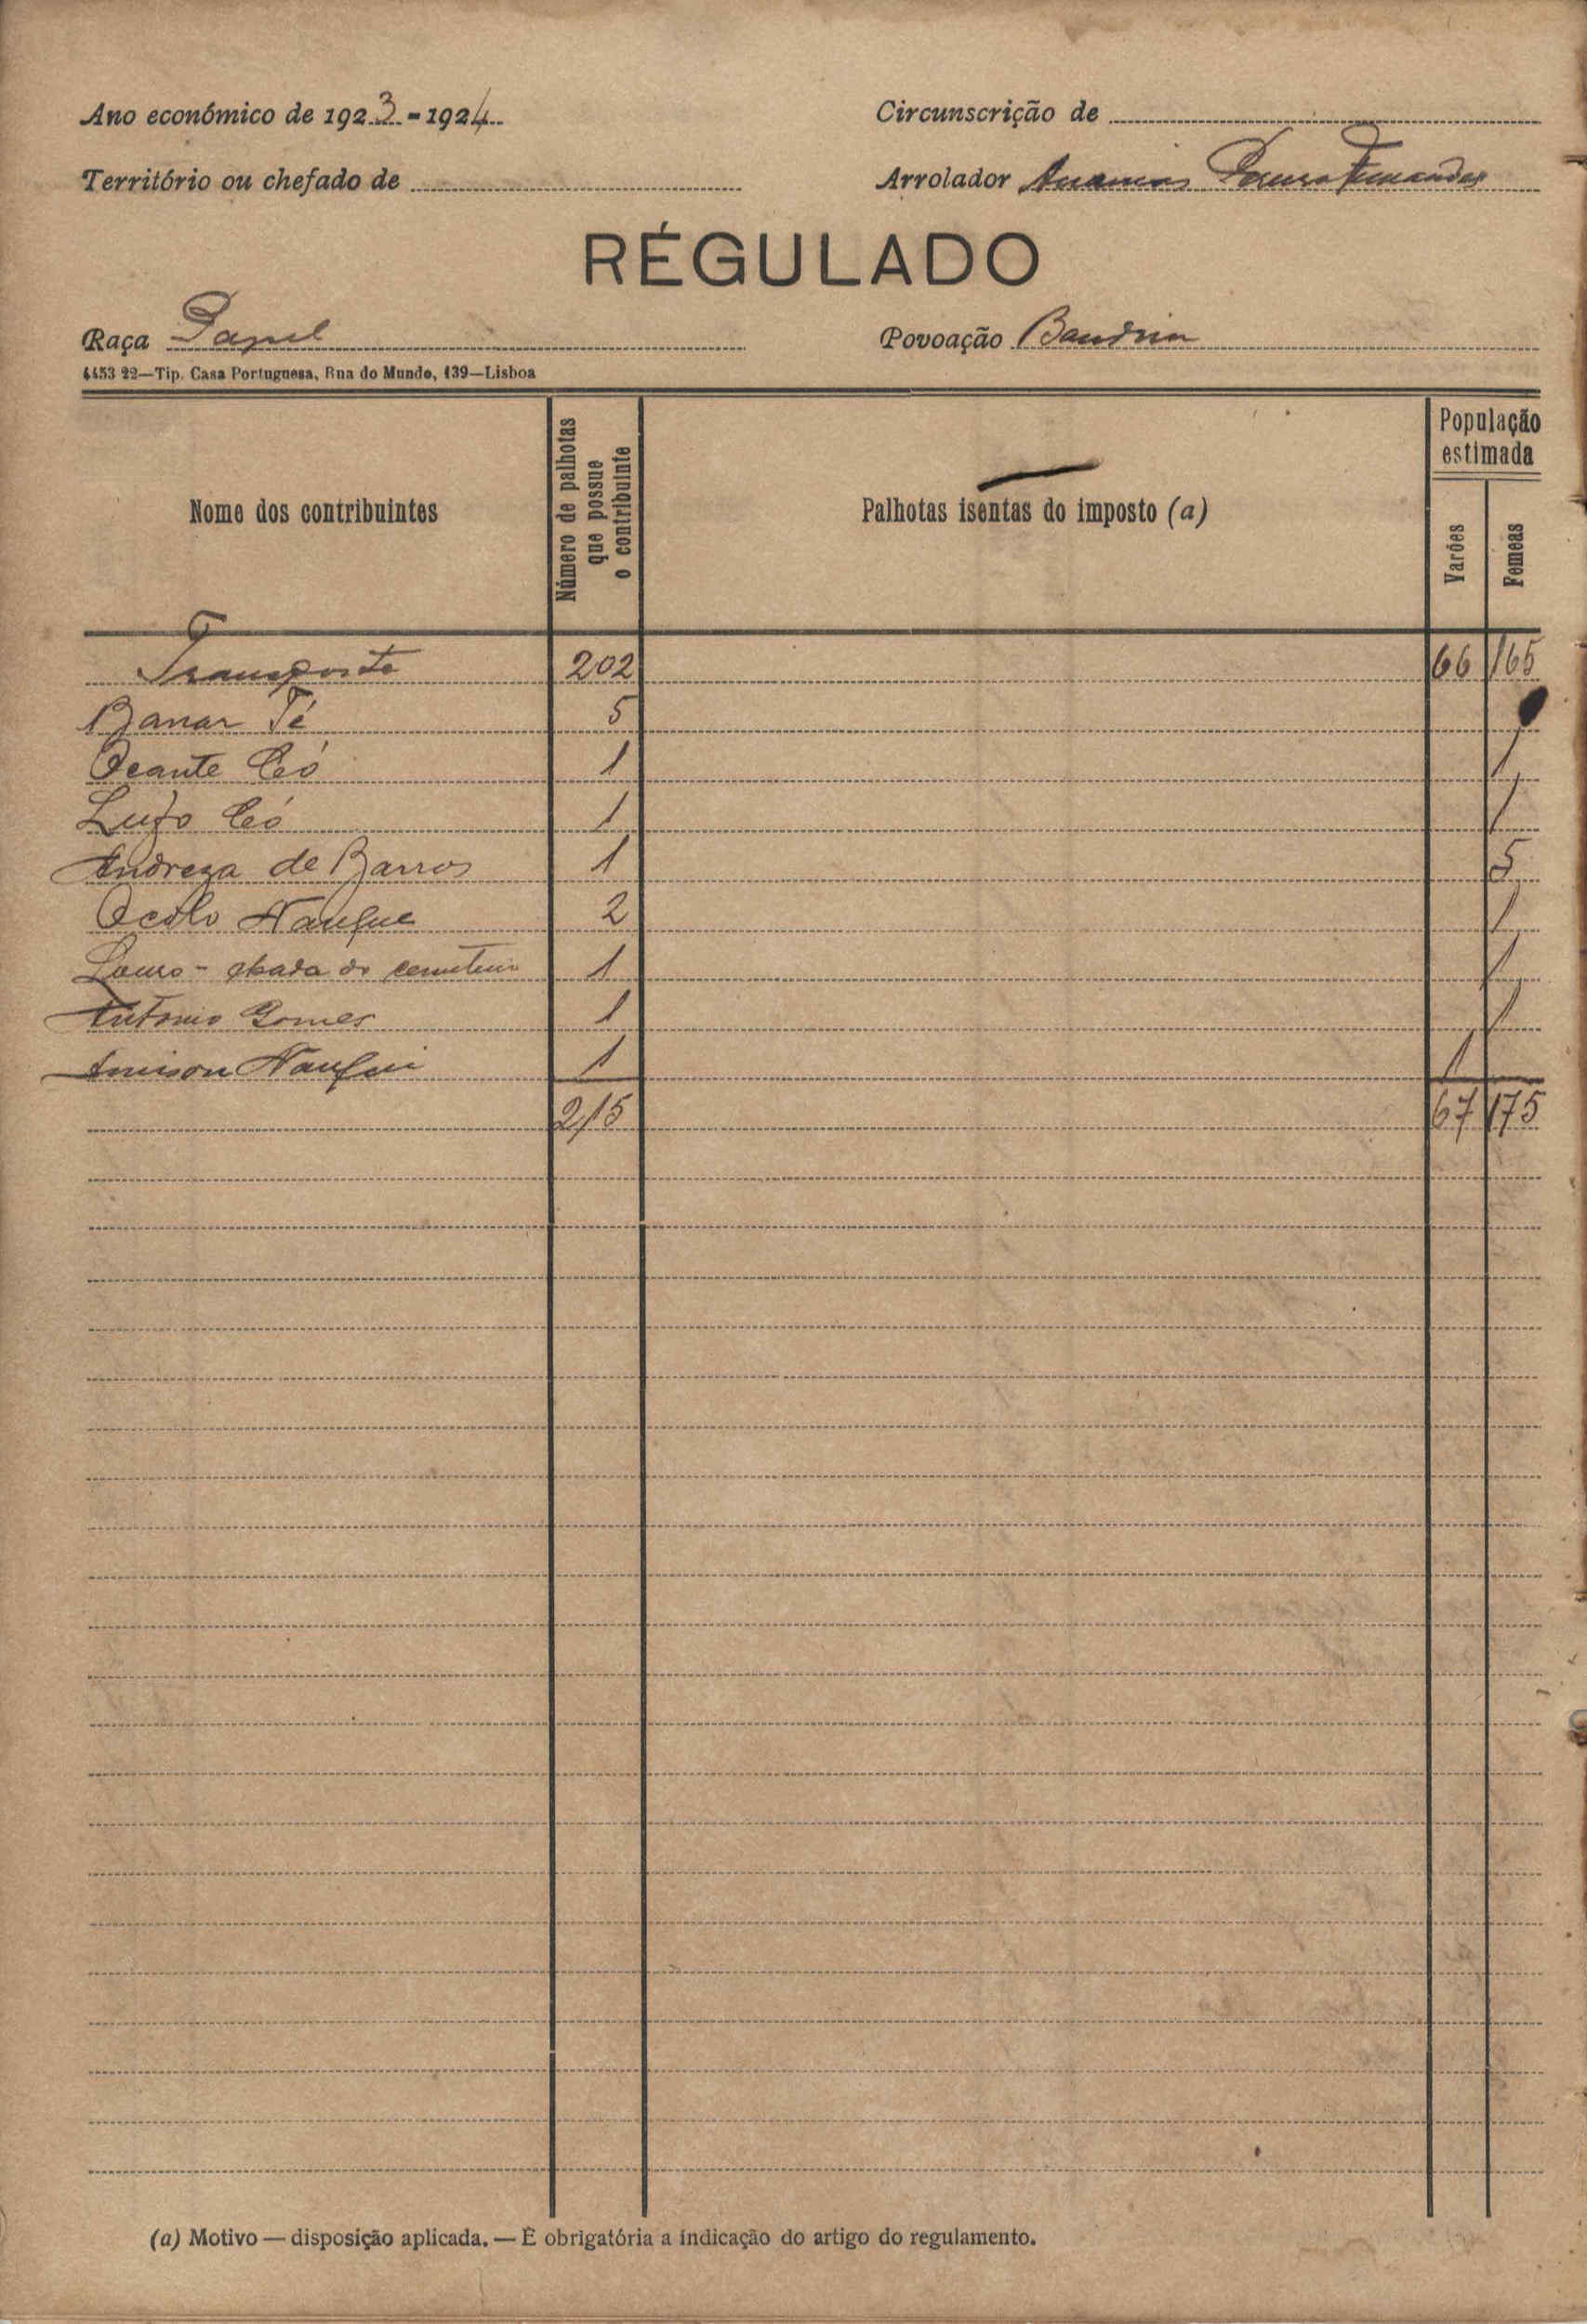 Ano económico de 1923-1924
Circunscrição de
Território ou chefado de
Arrolador Ananias Fernandes
RÉGULADO
Raça Papel
Povoação Bandim
4453 22—Tip. Casa Portuguesa, Rua do Mundo, 139—Lisboa
Nome dos contribuintes
Número de palhotas que possue o contribuinte
Palhotas isentas do imposto (a)
População estimada
Varões
Femeas
Transporte 202 66 165
Banar Té 5
Ocante Có 1 1
Lufo Có 1 1
Andreza de Barros 1 5
Ocolo Nanque 2 1
1 1
Antonio Gomes 1 1
Nanque 1 1
215 67 175
(a) Motivo — disposição aplicada. — É obrigatória a indicação do artigo do regulamento.